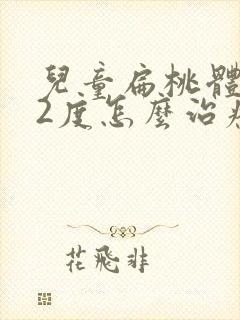 兒童扁桃體
2度怎麼治療
花飛非